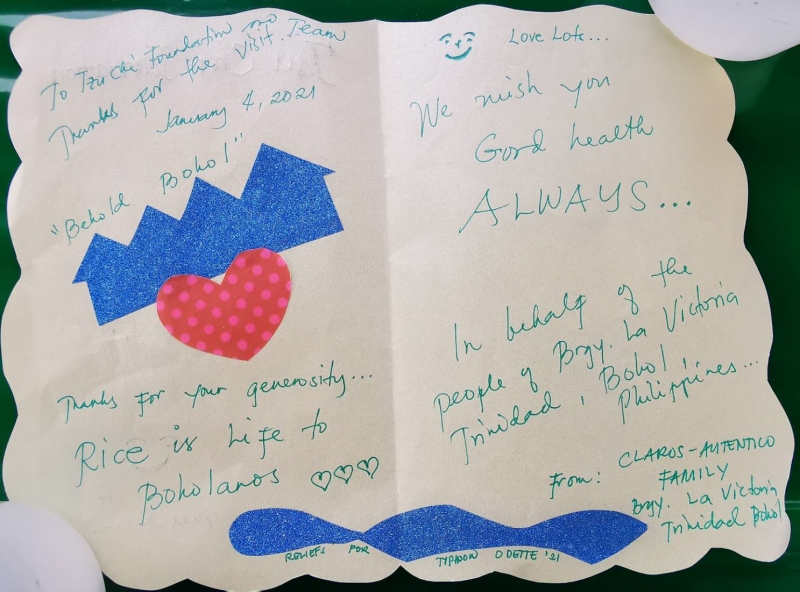 To Tzu Chi Foundation and
Thanks for the Visit. Team
January 4, 2021
"Behold Bohol"
Thanks For your generosity...
Rice is Life to
Boholanos ♡♡♡
Love Lots...
We wish you
Good health
ALWAYS...
In behalf of the
people of Brgy. La Victoria
Trinidad, Bohol,
Philippines...
From: CLAROS-AUTENTICO
FAMILY
Brgy. La Victoria
Trinidad Bohol
RELIEFS FOR TYPHOON ODETTE '21